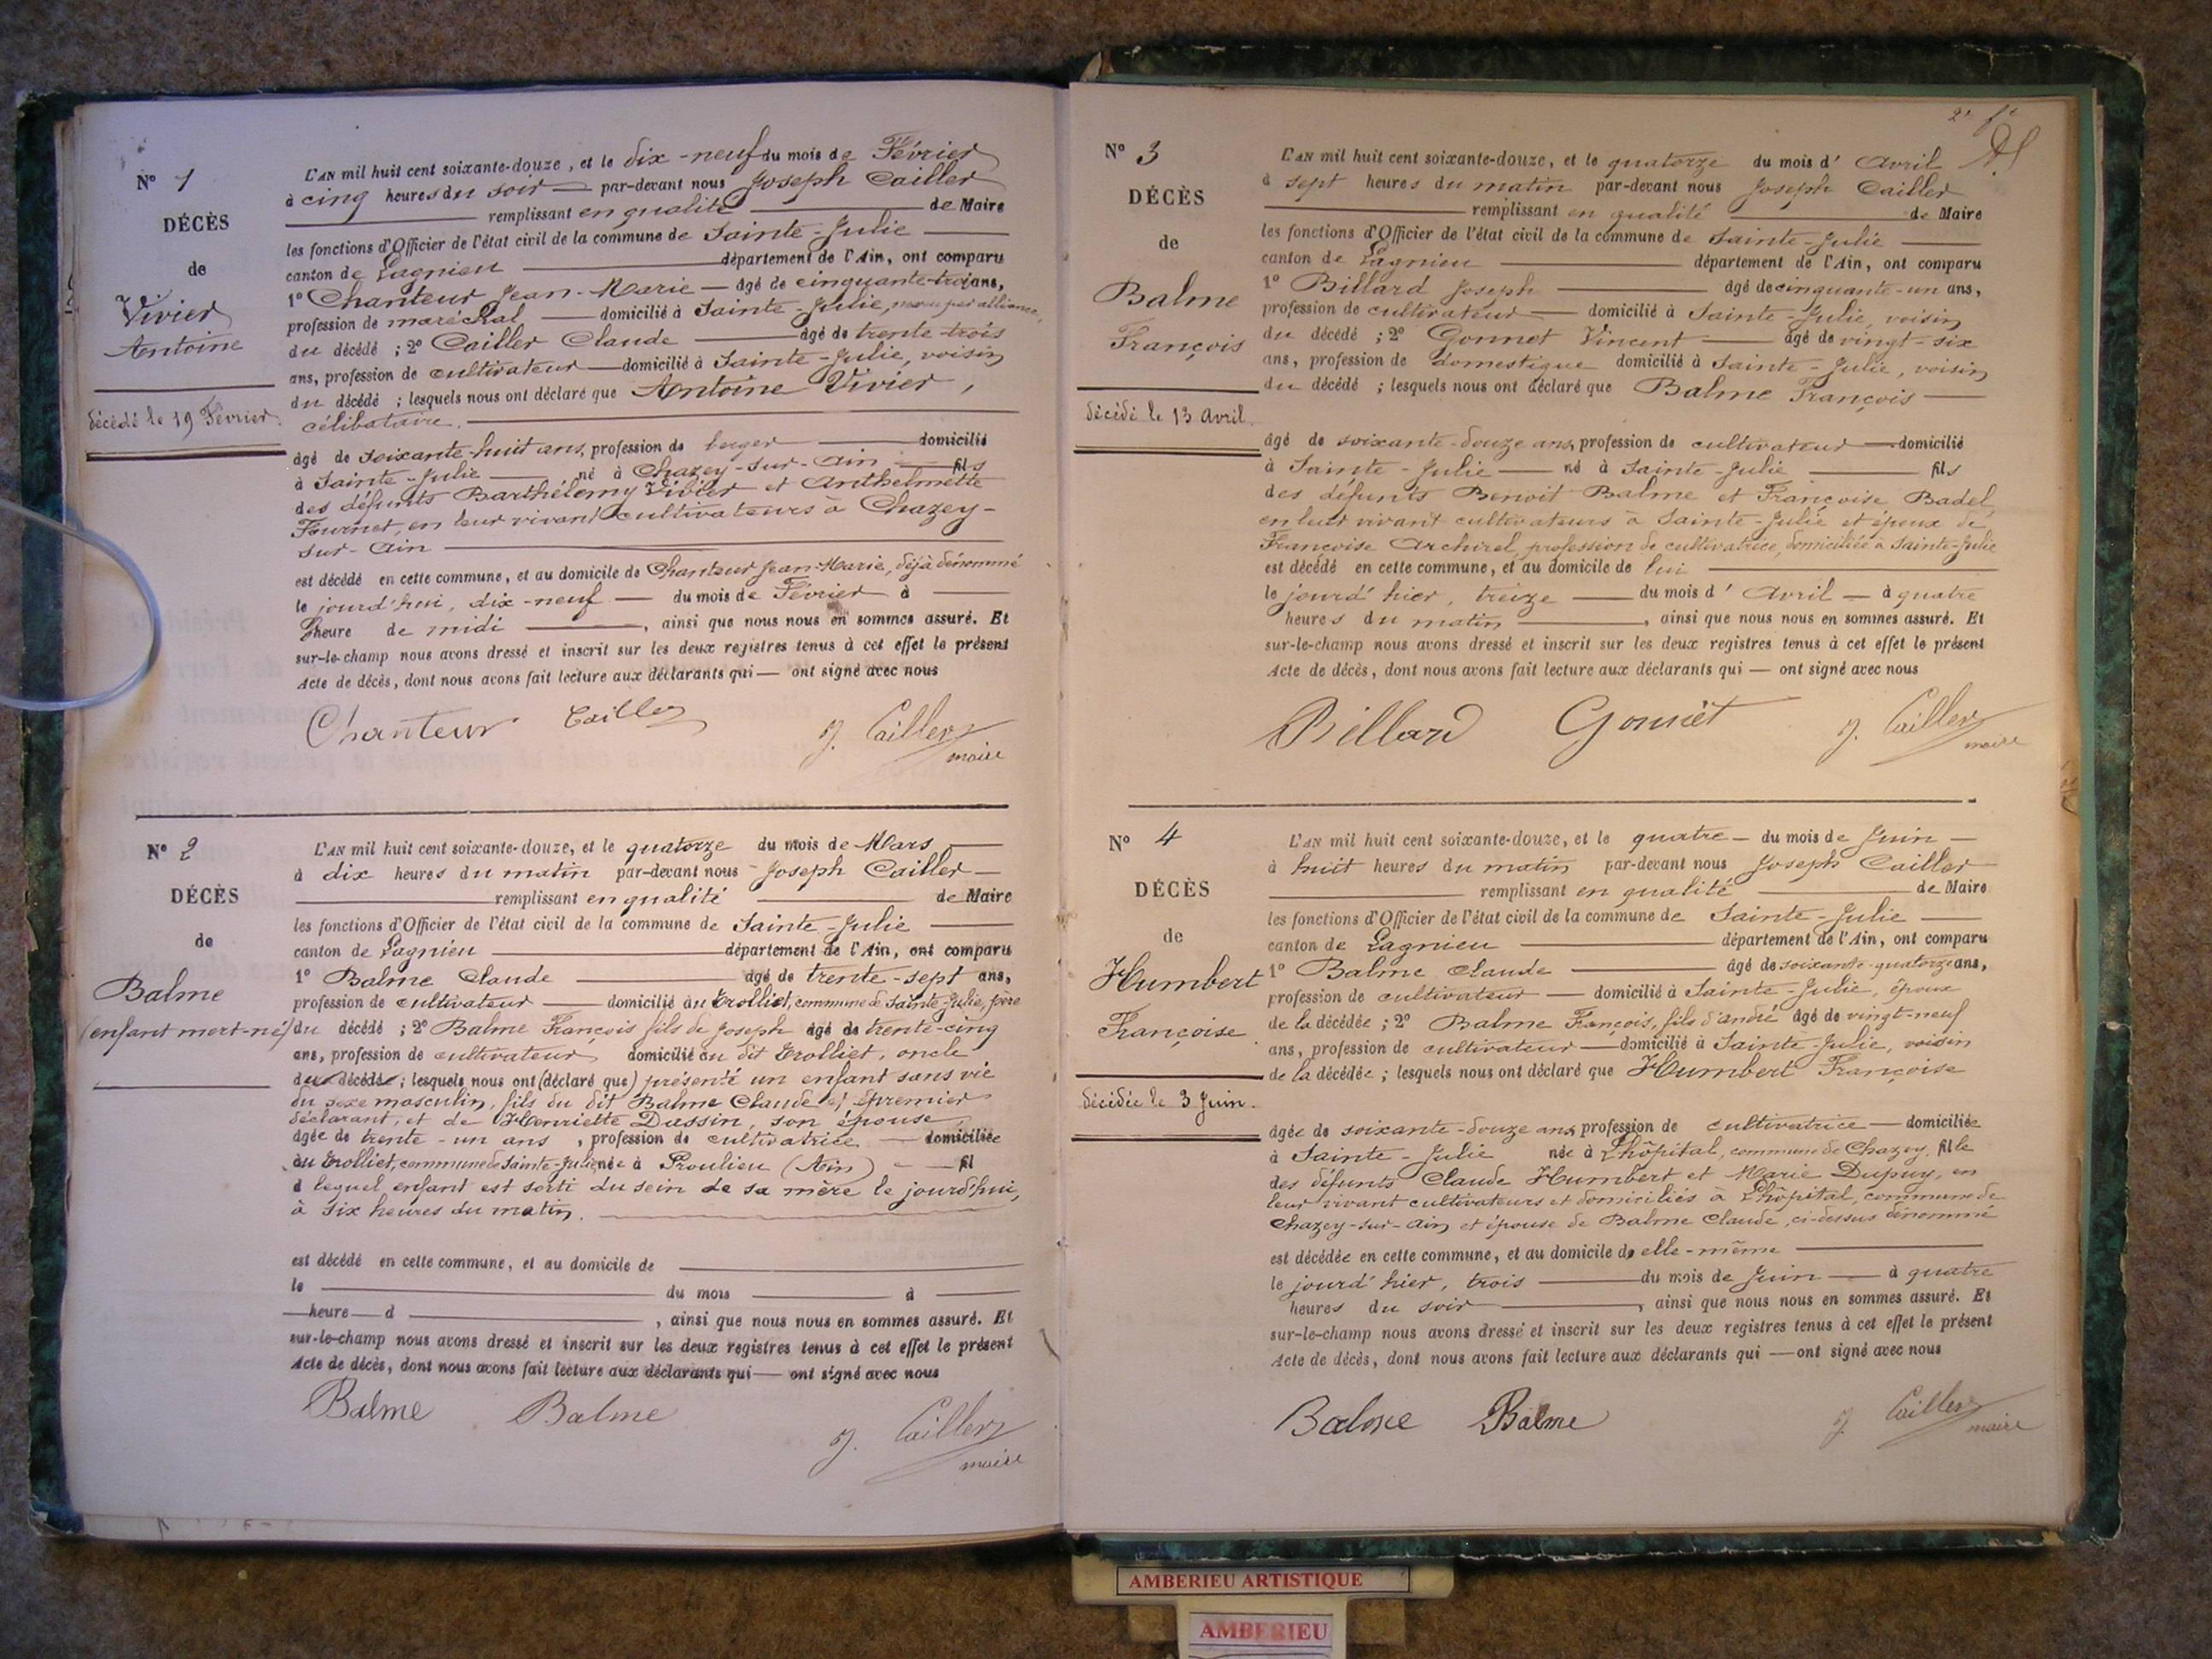 N° 1
DÉCÈS
de
Vivier
Antoine
décédé le 19 Février.
L'AN mil huit cent soixante-douze, et le dix-neuf du mois de Février
à cinq heures du soir par-devant nous Joseph Cailler
remplissant en qualité de Maire
les fonctions d'Officier de l'état civil de la commune de Sainte-Julie
canton de Lagnieu département de l'Ain, ont comparu
1° Chanteur Jean-Marie âgé de cinquante-trois ans,
profession de maréchal domicilié à Sainte-Julie, neveu par alliance,
du décédé ; 2° Cailler Claude âgé de trente-trois
ans, profession de cultivateur domicilié à Sainte-Julie, voisin
du décédé ; lesquels nous ont déclaré que Antoine Vivier,
célibataire.
âgé de soixante-huit ans, profession de berger domicilié
à Sainte-Julie né à Chazey-sur-Ain fils
des défunts Barthélemy Vivier et Anthelmette
Fournet, en leur vivant cultivateurs à Chazey-
sur-Ain
est décédé en cette commune, et au domicile de Chanteur Jean-Marie, déjà dénommé
le jourd'hui, dix-neuf du mois de Février à
heure de midi , ainsi que nous nous en sommes assuré. Et
sur-le-champ nous avons dressé et inscrit sur les deux registres tenus à cet effet le présent
Acte de décès, dont nous avons fait lecture aux déclarants qui — ont signé avec nous
Chanteur Cailler J. Cailler
maire
N° 2
DÉCÈS
de
Balme
(enfant mort-né)
L'AN mil huit cent soixante-douze, et le quatorze du mois de Mars
à dix heures du matin par-devant nous Joseph Cailler
remplissant en qualité de Maire
les fonctions d'Officier de l'état civil de la commune de Sainte-Julie
canton de Lagnieu département de l'Ain, ont comparu
1° Balme Claude âgé de trente-sept ans,
profession de cultivateur domicilié au Trolliet, commune de Sainte-Julie, père
du décédé ; 2° Balme François fils de Joseph âgé de trente-cinq
ans, profession de cultivateur domicilié au dit Trolliet, oncle
du décédé ; lesquels nous ont (déclaré que) présenté un enfant sans vie
du sexe masculin, fils du dit Balme Claude premier
déclarant, et de Henriette Dussin, son épouse,
âgée de trente-un ans, profession de cultivatrice domiciliée
au Trolliet, commune de Sainte-Julie née à Proulieu (Ain) fil
d lequel enfant est sorti du sein de sa mère le jourd'hui,
à six heures du matin.
est décédé en cette commune, et au domicile de
le du mois à
heure d , ainsi que nous nous en sommes assuré. Et
sur-le-champ nous avons dressé et inscrit sur les deux registres tenus à cet effet le présent
Acte de décès, dont nous avons fait lecture aux déclarants qui — ont signé avec nous
Balme Balme J. Cailler
maire
N° 3
DÉCÈS
de
Balme
François
décédé le 13 avril.
L'AN mil huit cent soixante-douze, et le quatorze du mois d'Avril
à sept heures du matin par-devant nous Joseph Cailler
remplissant en qualité de Maire
les fonctions d'Officier de l'état civil de la commune de Sainte-Julie
canton de Lagnieu département de l'Ain, ont comparu
1° Billard Joseph âgé de cinquante-un ans,
profession de cultivateur domicilié à Sainte-Julie, voisin
du décédé ; 2° Gonnet Vincent âgé de vingt-six
ans, profession de domestique domicilié à Sainte-Julie, voisin
du décédé ; lesquels nous ont déclaré que Balme François
âgé de soixante-douze ans, profession de cultivateur domicilié
à Sainte-Julie né à Sainte-Julie fils
des défunts Benoit Balme et Françoise Badel,
en leur vivant cultivateurs à Sainte-Julie et époux de
Françoise Archirel, profession de cultivatrice, domiciliée à Sainte-Julie
est décédé en cette commune, et au domicile de lui
le jourd'hier, treize du mois d'Avril à quatre
heures du matin , ainsi que nous nous en sommes assuré. Et
sur-le-champ nous avons dressé et inscrit sur les deux registres tenus à cet effet le présent
Acte de décès, dont nous avons fait lecture aux déclarants qui — ont signé avec nous
Billard Gonnet J. Cailler
maire
N° 4
DÉCÈS
de
Humbert
Françoise.
décédée le 3 Juin.
L'AN mil huit cent soixante-douze, et le quatre du mois de Juin
à huit heures du matin par-devant nous Joseph Cailler
remplissant en qualité de Maire
les fonctions d'Officier de l'état civil de la commune de Sainte-Julie
canton de Lagnieu département de l'Ain, ont comparu
1° Balme Claude âgé de soixante-quatorze ans,
profession de cultivateur domicilié à Sainte-Julie, époux
de la décédée ; 2° Balme François, fils d'André âgé de vingt-neuf
ans, profession de cultivateur domicilié à Sainte-Julie, voisin
de la décédée ; lesquels nous ont déclaré que Humbert Françoise
âgée de soixante-douze ans, profession de cultivatrice domiciliée
à Sainte-Julie née à Lhôpital, commune de Chazey, fille
des défunts Claude Humbert et Marie Dupuy, en
leur vivant cultivateurs et domiciliés à Lhôpital, commune de
Chazey-sur-Ain et épouse de Balme Claude, ci-dessus dénommé
est décédée en cette commune, et au domicile de elle-même
le jourd'hier, trois du mois de Juin à quatre
heures du soir , ainsi que nous nous en sommes assuré. Et
sur-le-champ nous avons dressé et inscrit sur les deux registres tenus à cet effet le présent
Acte de décès, dont nous avons fait lecture aux déclarants qui — ont signé avec nous
Balme Balme J. Cailler
maire
AMBERIEU ARTISTIQUE
AMBERIEU